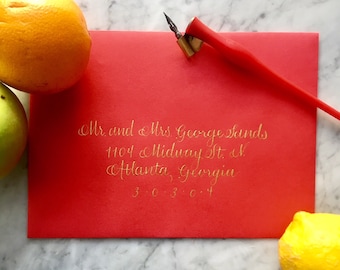 Mr. and Mrs. George Sands
1104 Midway St. N
Atlanta, Georgia
3 · 0 · 3 · 0 · 4